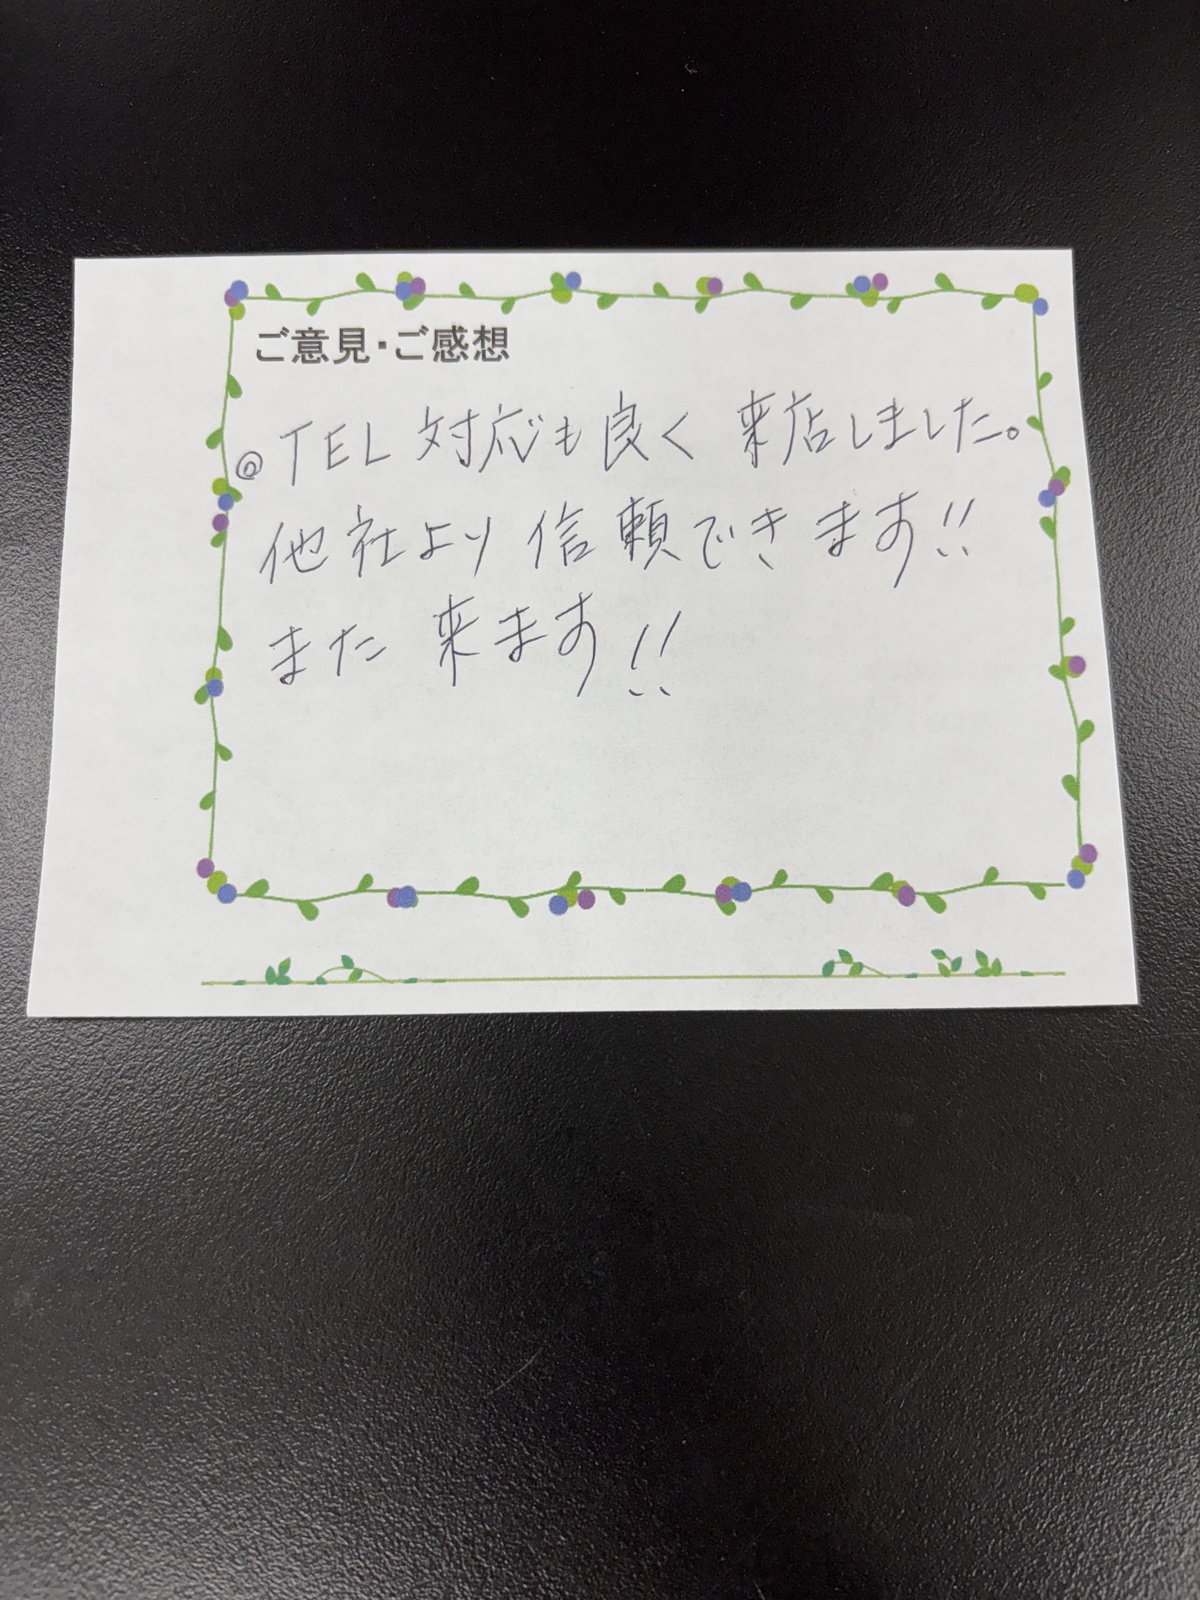 ご意見・ご感想
◎TEL対応も良く 来店しました。
他社より信頼できます!!
また 来ます!!